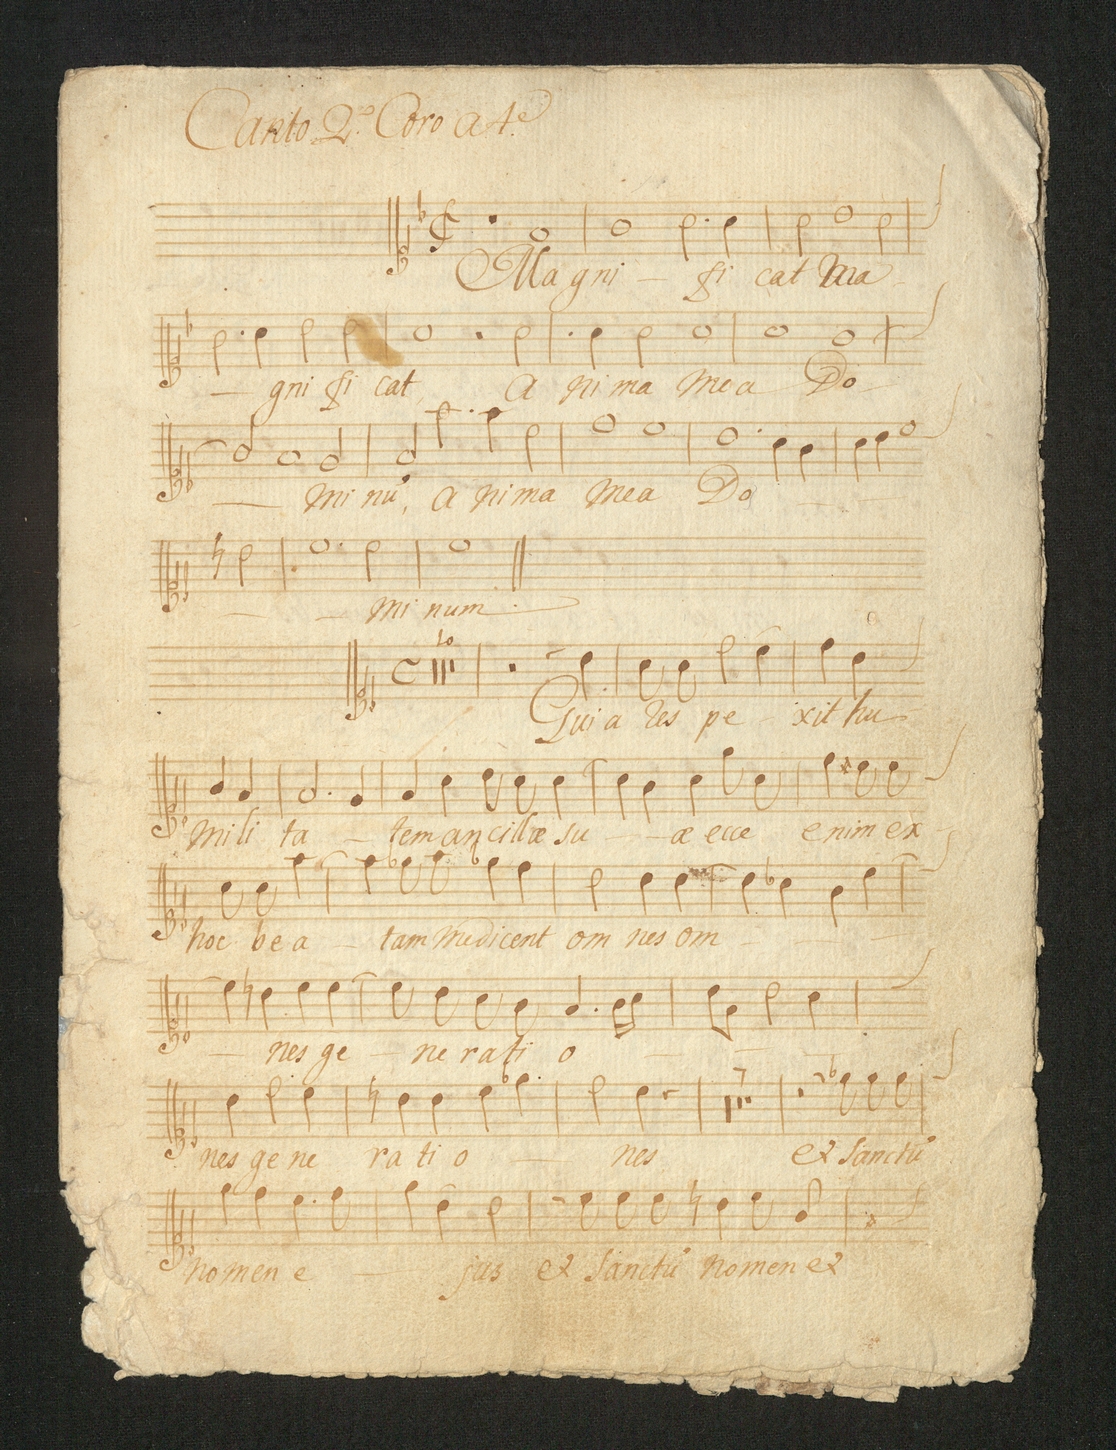 Canto 2º Coro a 4º
Magni - fi cat Ma
- gni fi cat, a ni ma mea Do
- mi nũ, a ni ma mea Do
- - mi num
10
Quia res pe - xit hu
mili ta - tem ancillæ su - - æ ecce enim ex
hoc be a - tam me dicent om nes om - - -
- nes ge - ne rati o - - -
7
nes ge ne ra ti o - nes et sanctũ
nomen e - jus et sanctũ nomen et